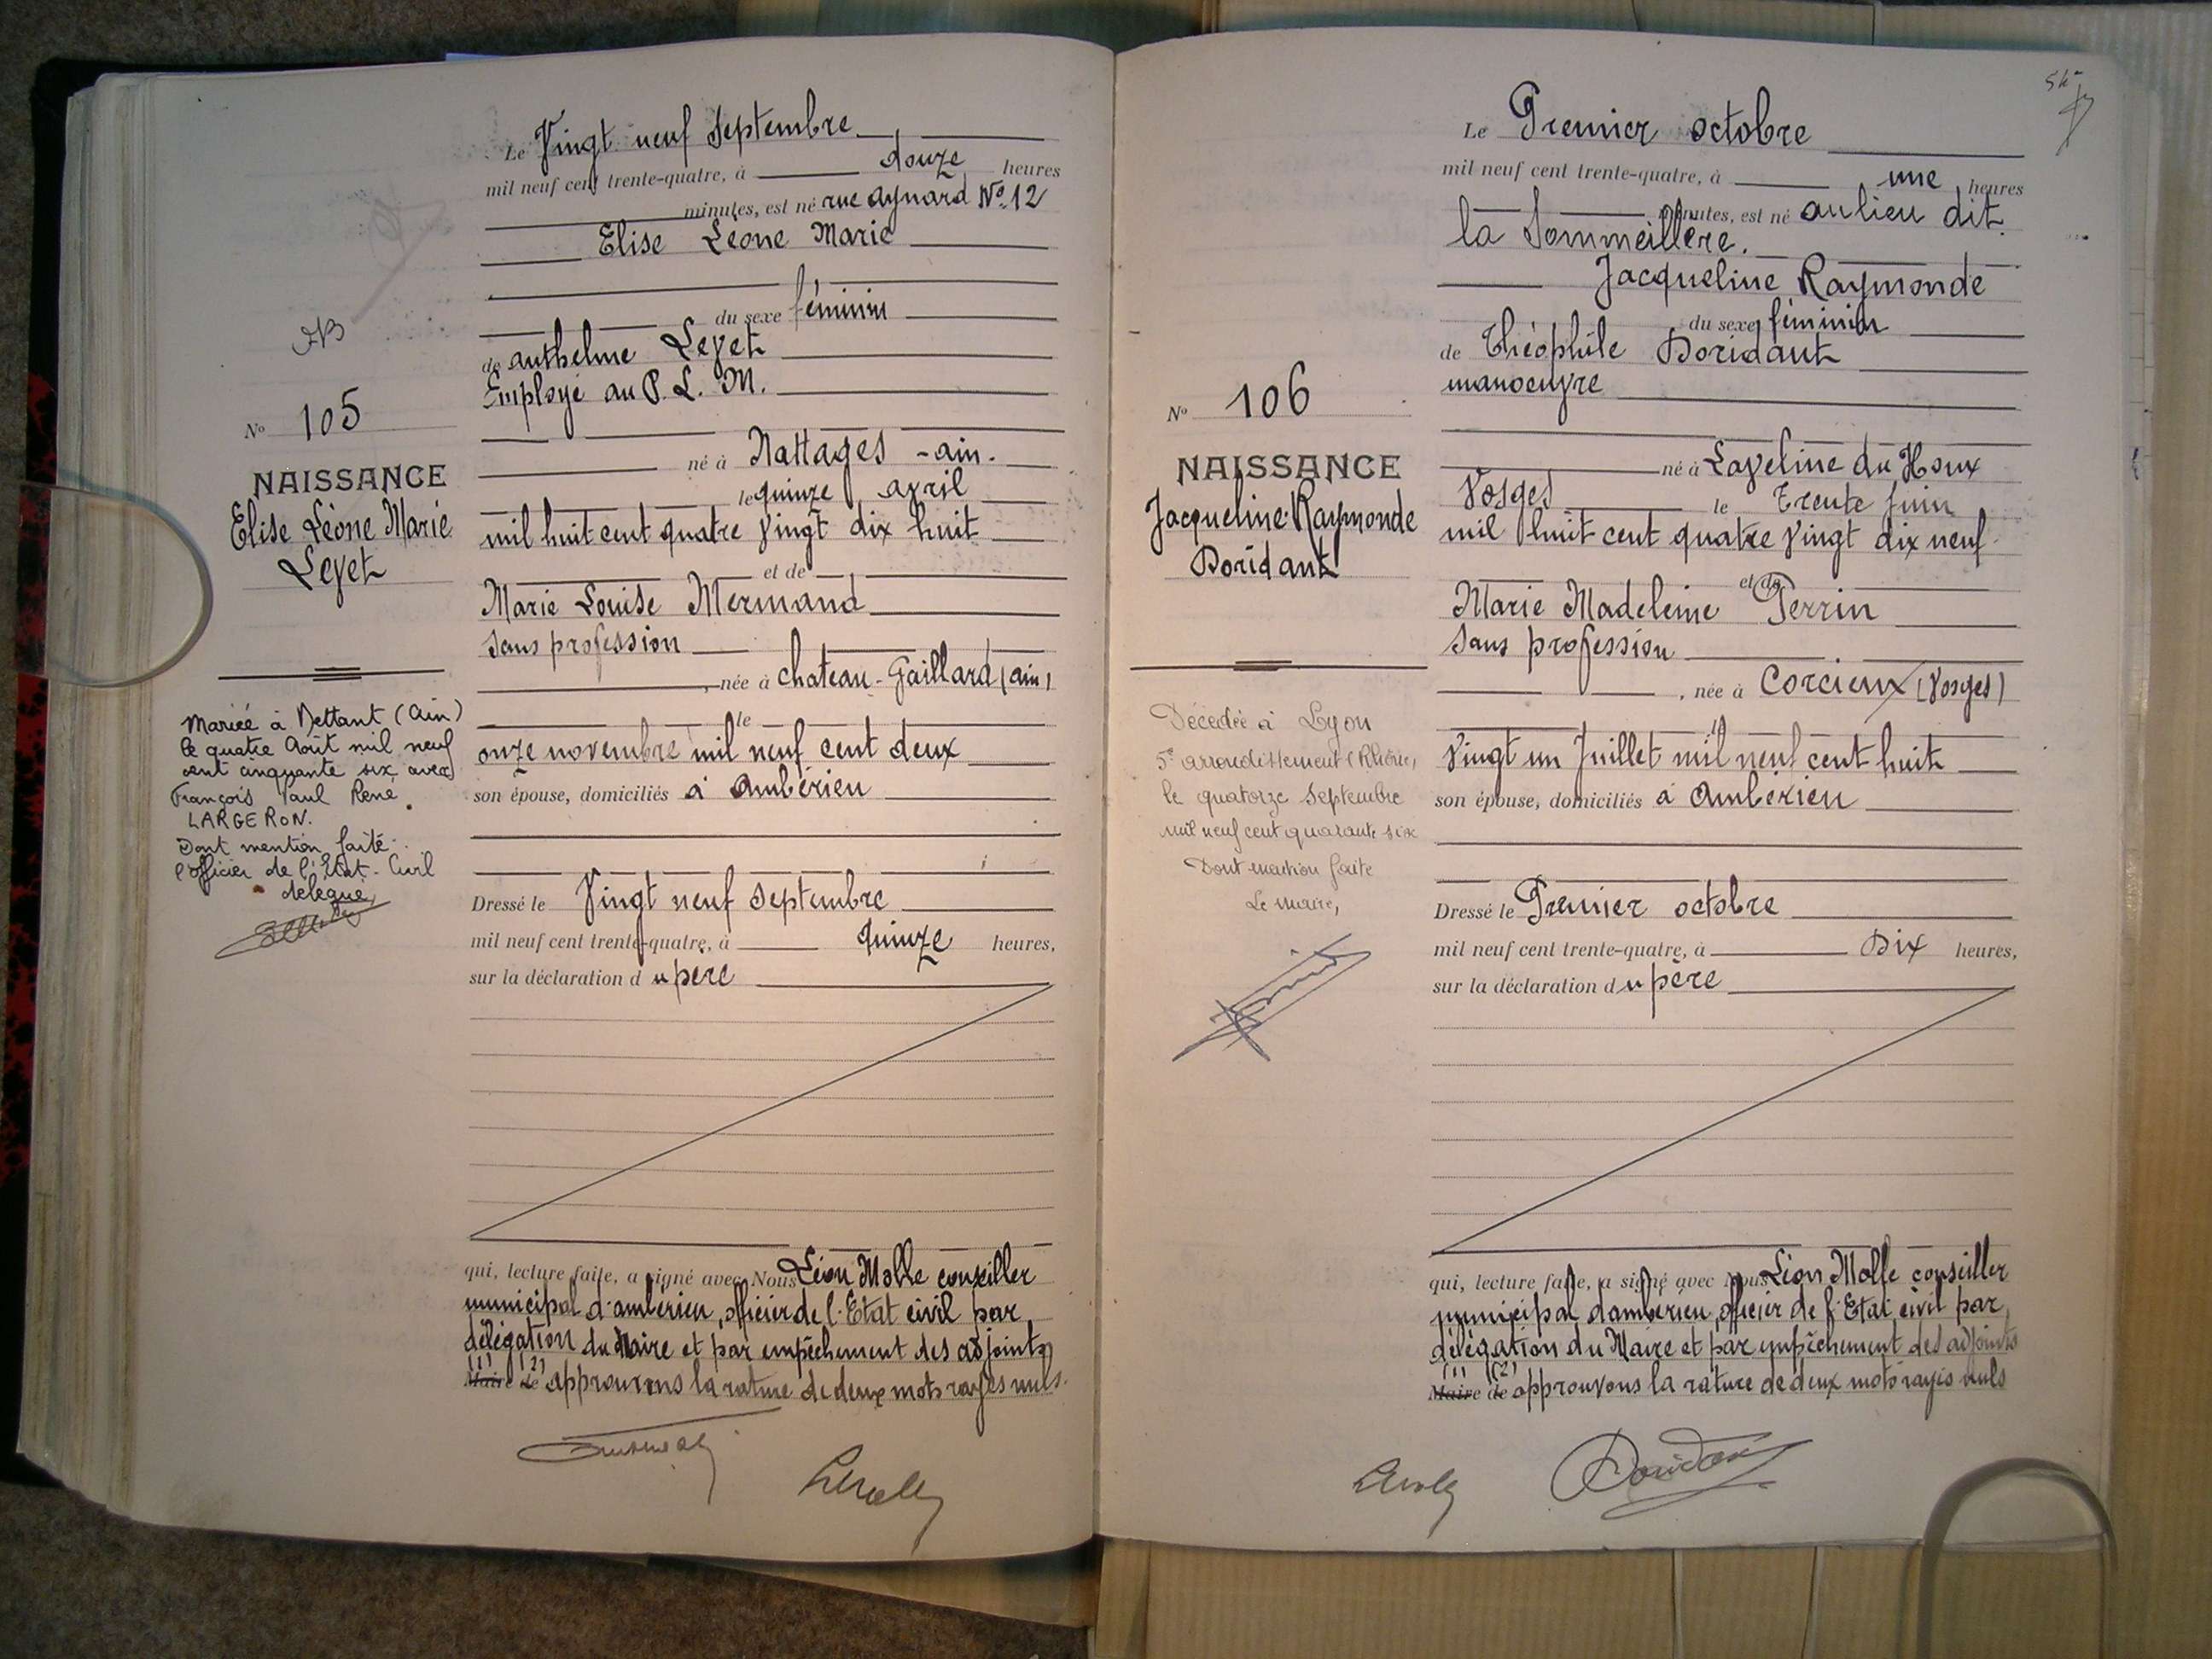 Le Vingt neuf Septembre
mil neuf cent trente-quatre, à douze heures
minutes, est né rue Aynard No. 12
Elise Léone Marie
du sexe féminin
de anthelme Levet
Employé au P. L. M.
né à Nattages - ain.
le quinze avril
mil huit cent quatre vingt dix huit
et de
Marie Louise Mermand
Sans profession
, née à chateau-Gaillard (ain)
le
onze novembre mil neuf cent deux
son épouse, domiciliés à Ambérieu
Dressé le Vingt neuf Septembre
mil neuf cent trente-quatre, à quinze heures,
sur la déclaration du père
qui, lecture faite, a signé avec Nous Léon Molle conseiller
municipal d'ambérieu, officier de l'Etat civil par
délégation du Maire et par empêchement des adjoints
(1) (2)
Maire de approuvons la rature de deux mots rayés nuls.
No 105
NAISSANCE
Elise Léone Marie
Levet
Mariée à Bettant (Ain)
le quatre Août mil neuf
cent cinquante six avec
François Paul René
LARGERON.
Dont mention faite.
l'officier de l'Etat-Civil
délégué,
Le Premier octobre
mil neuf cent trente-quatre, à une heures
minutes, est né au lieu dit
la Sommeillère.
Jacqueline Raymonde
du sexe féminin
de Théophile Doridant
manoeuvre
né à Laveline du Houx
Vosges le Trente Juin
mil huit cent quatre vingt dix neuf
et de
Marie Madeleine Perrin
Sans profession
, née à Corcieux (Vosges)
le
Vingt un Juillet mil neuf cent huit
son épouse, domiciliés à Ambérieu
Dressé le Premier octobre
mil neuf cent trente-quatre, à Dix heures,
sur la déclaration du père
qui, lecture faite, a signé avec Nous Léon Molle conseiller
municipal d'ambérieu, officier de l'Etat civil par
délégation du Maire et par empêchement des adjoints
(1) (2)
Maire de approuvons la rature de deux mots rayés nuls
Doridant
No 106
NAISSANCE
Jacqueline Raymonde
Doridant
Décédée à Lyon
5e arrondissement (Rhône)
le quatorze Septembre
mil neuf cent quarante six
Dont mention faite
Le Maire,